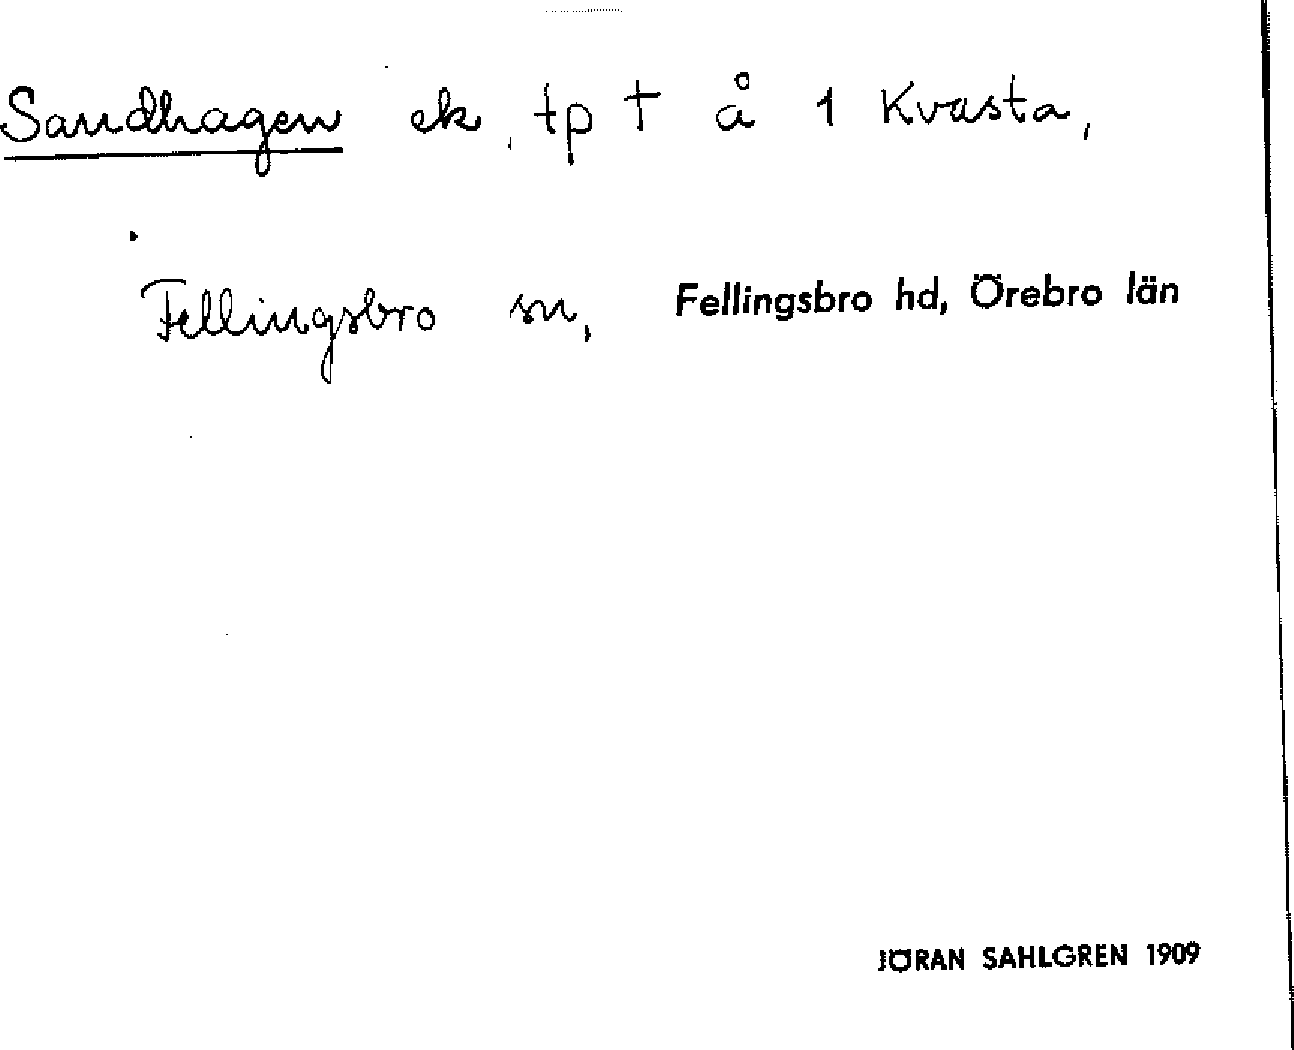 Sandhagen ek, tp † å 1 Kvasta,
Fellingsbro sn, Fellingsbro hd, Örebro län
JÖRAN SAHLGREN 1909